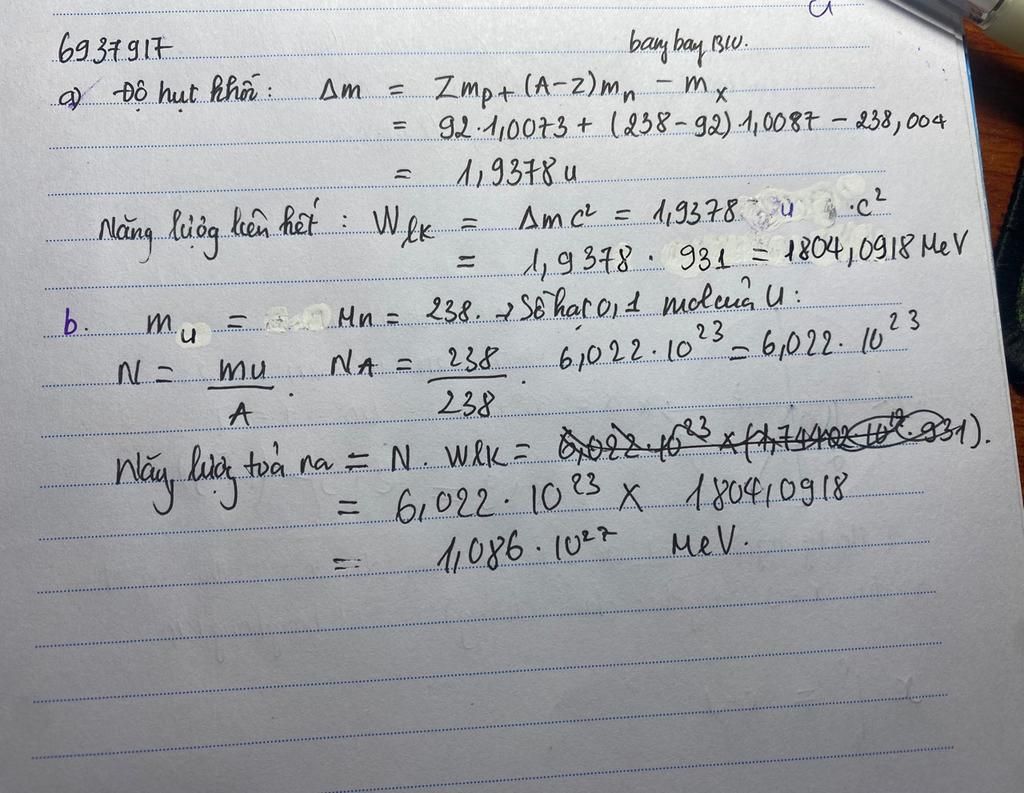 6937917 bay bay BIU.
a) Độ hụt khối: Δm = Zmp + (A-Z)mn - mx
= 92.1,0073 + (238-92)1,0087 - 238,004
= 1,9378 u
Năng lượng liên kết: Wlk = Δmc² = 1,9378 u .c²
= 1,9378 . 931 = 1804,0918 MeV
b. mu = Mn = 238. → Số hạt 0,1 mol của U:
N = mu/A . NA = 238/238 . 6,022.10²³ = 6,022.10²³
Năg lượg toả ra = N. Wlk =
= 6,022.10²³ x 1804,0918
= 1,086.10²⁷ MeV.